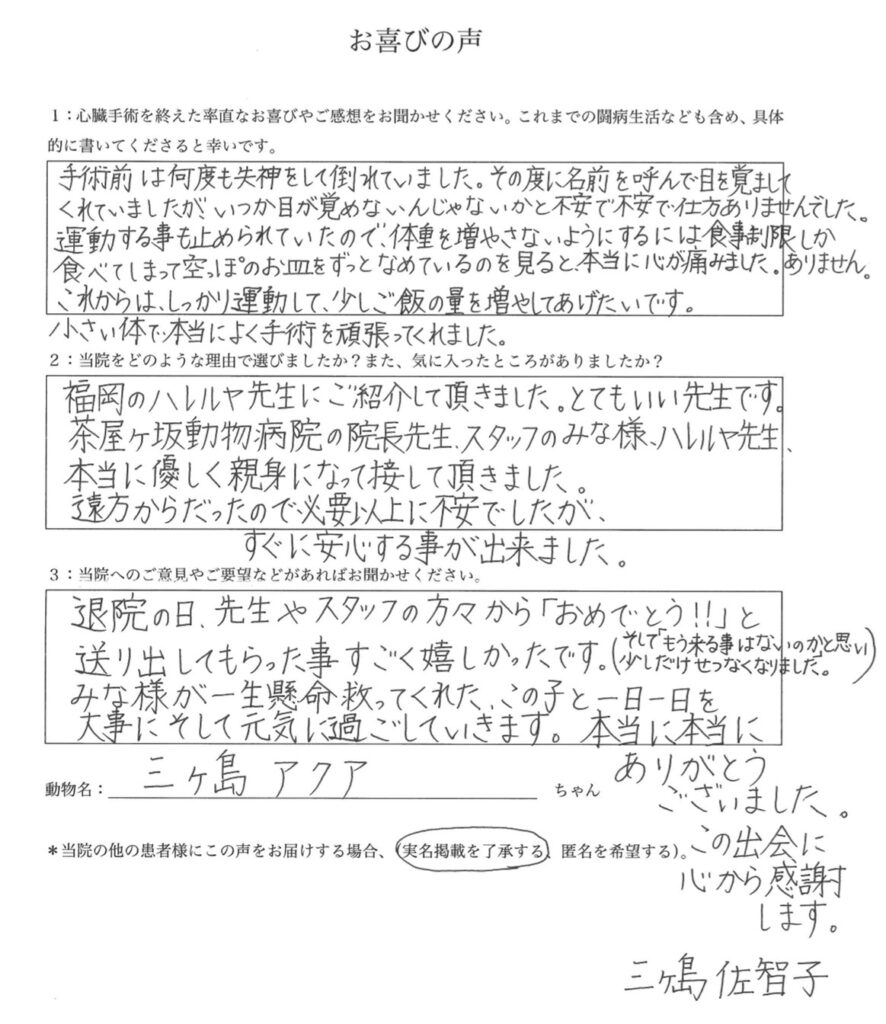 お喜びの声
1：心臓手術を終えた率直なお喜びやご感想をお聞かせください。これまでの闘病生活なども含め、具体
的に書いてくださると幸いです。
手術前は何度も失神をして倒れていました。その度に名前を呼んで目を覚まして
くれていましたが、いつか目が覚めないんじゃないかと不安で不安で仕方ありませんでした。
運動する事も止められていたので、体重を増やさないようにするには食事制限しか
ありません。
食べてしまって空っぽのお皿をずっとなめているのを見ると、本当に心が痛みました。
これからは、しっかり運動して、少しご飯の量を増やしてあげたいです。
小さい体で、本当によく手術を頑張ってくれました。
2：当院をどのような理由で選びましたか？また、気に入ったところがありましたか？
福岡のハレルヤ先生にご紹介して頂きました。とてもいい先生です。
茶屋ヶ坂動物病院の院長先生、スタッフのみな様、ハレルヤ先生、
本当に優しく親身になって接して頂きました。
遠方からだったので、必要以上に不安でしたが、
すぐに安心する事が出来ました。
3：当院へのご意見やご要望などがあればお聞かせください。
退院の日、先生やスタッフの方々から「おめでとう!!」と
送り出してもらった事すごく嬉しかったです。
(そして「もう来る事はないのか」と思い
少しだけせつなくなりました。)
みな様が一生懸命救ってくれた、この子と一日一日を
大事にそして元気に過ごしていきます。本当に本当に
ありがとう
ございました。
動物名：三ヶ島 アクア ちゃん
＊当院の他の患者様にこの声をお届けする場合、(実名掲載を了承する、匿名を希望する)。
この出会に
心から感謝
します。
三ヶ島 佐智子